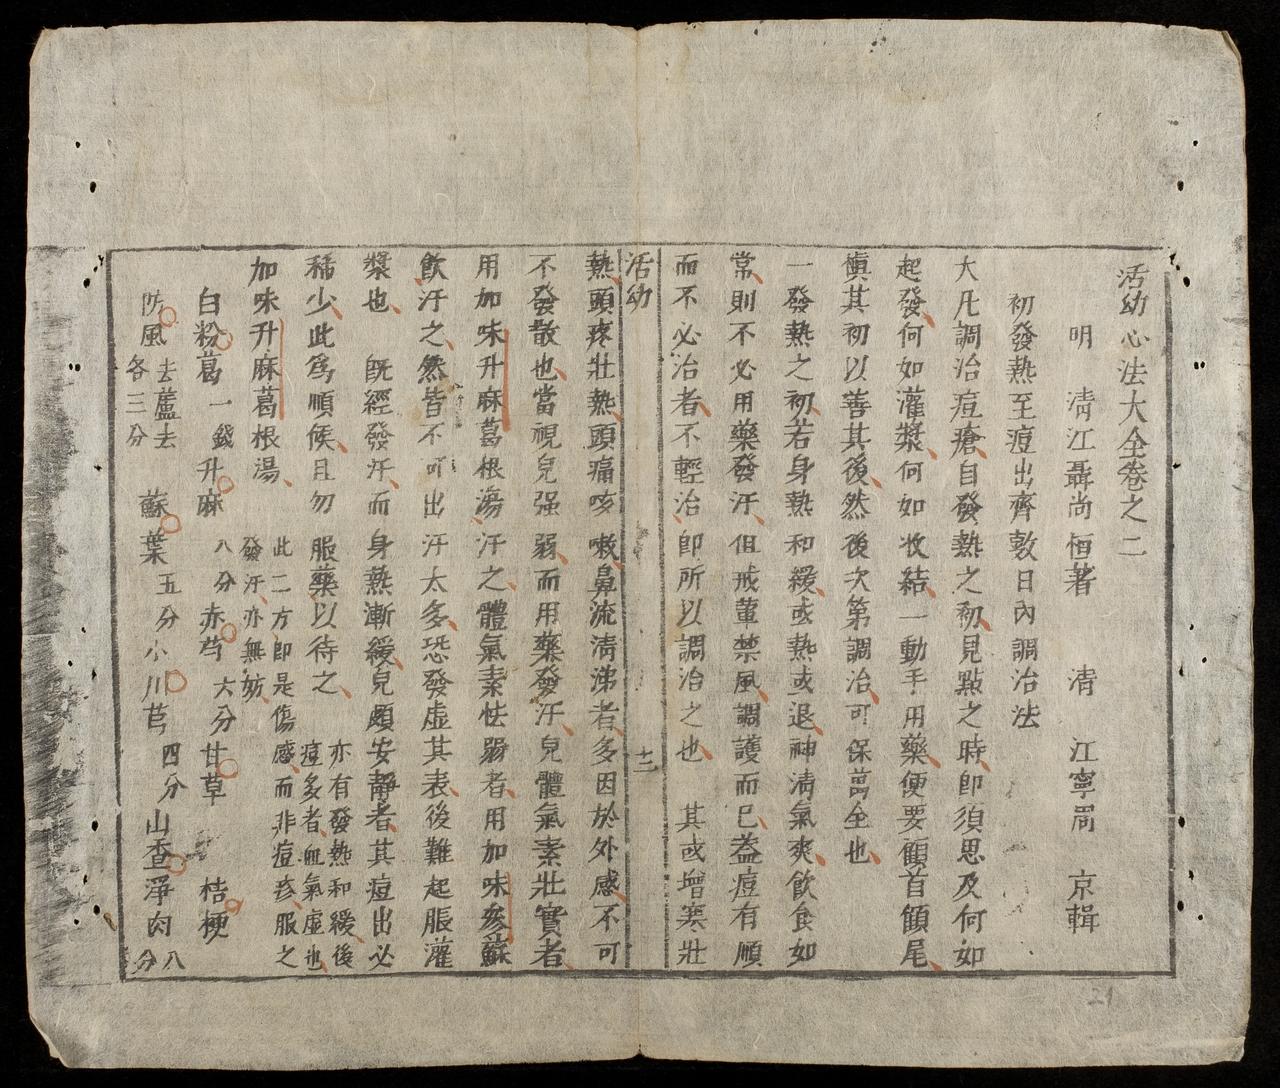 活幼心法大全卷之二
明 清江聶尚恒著 清 江寧周 京輯
初發熱至痘出齊數日內調治法
大凡調治痘瘡自發熱之初見點之時即須思及何如
起發何如灌漿何如收結一動手用藥便要顧首顧尾
愼其初以善其後然後次第調治可保萬全也
一發熱之初若身熱和緩或熱或退神淸氣爽飮食如
常則不必用藥發汗但戒葷禁風調護而已蓋痘有順
而不必治者不輕治即所以調治之也 其或增寒壯
活幼 十三
熱頭疼壯熱頭痛咳嗽鼻流淸涕者多因於外感不可
不發散也當視兒强弱而用藥發汗兒體氣素壯實者
用加味升麻葛根湯汗之體氣素怯弱者用加味參蘇
飮汗之然皆不可出汗太多恐發虛其表後難起脹灌
漿也 旣經發汗而身熱漸緩兒頗安靜者其痘出必
稀少此爲順候且勿服藥以待之 亦有發熱和緩後
痘多者血氣虛也
加味升麻葛根湯 此二方即是傷感而非痘疹服之
發汗亦無妨
白粉葛一錢升麻八分赤芍六分甘草 桔梗
防風去蘆去各三分 蘇葉五分小川芎四分山查淨肉八分
21